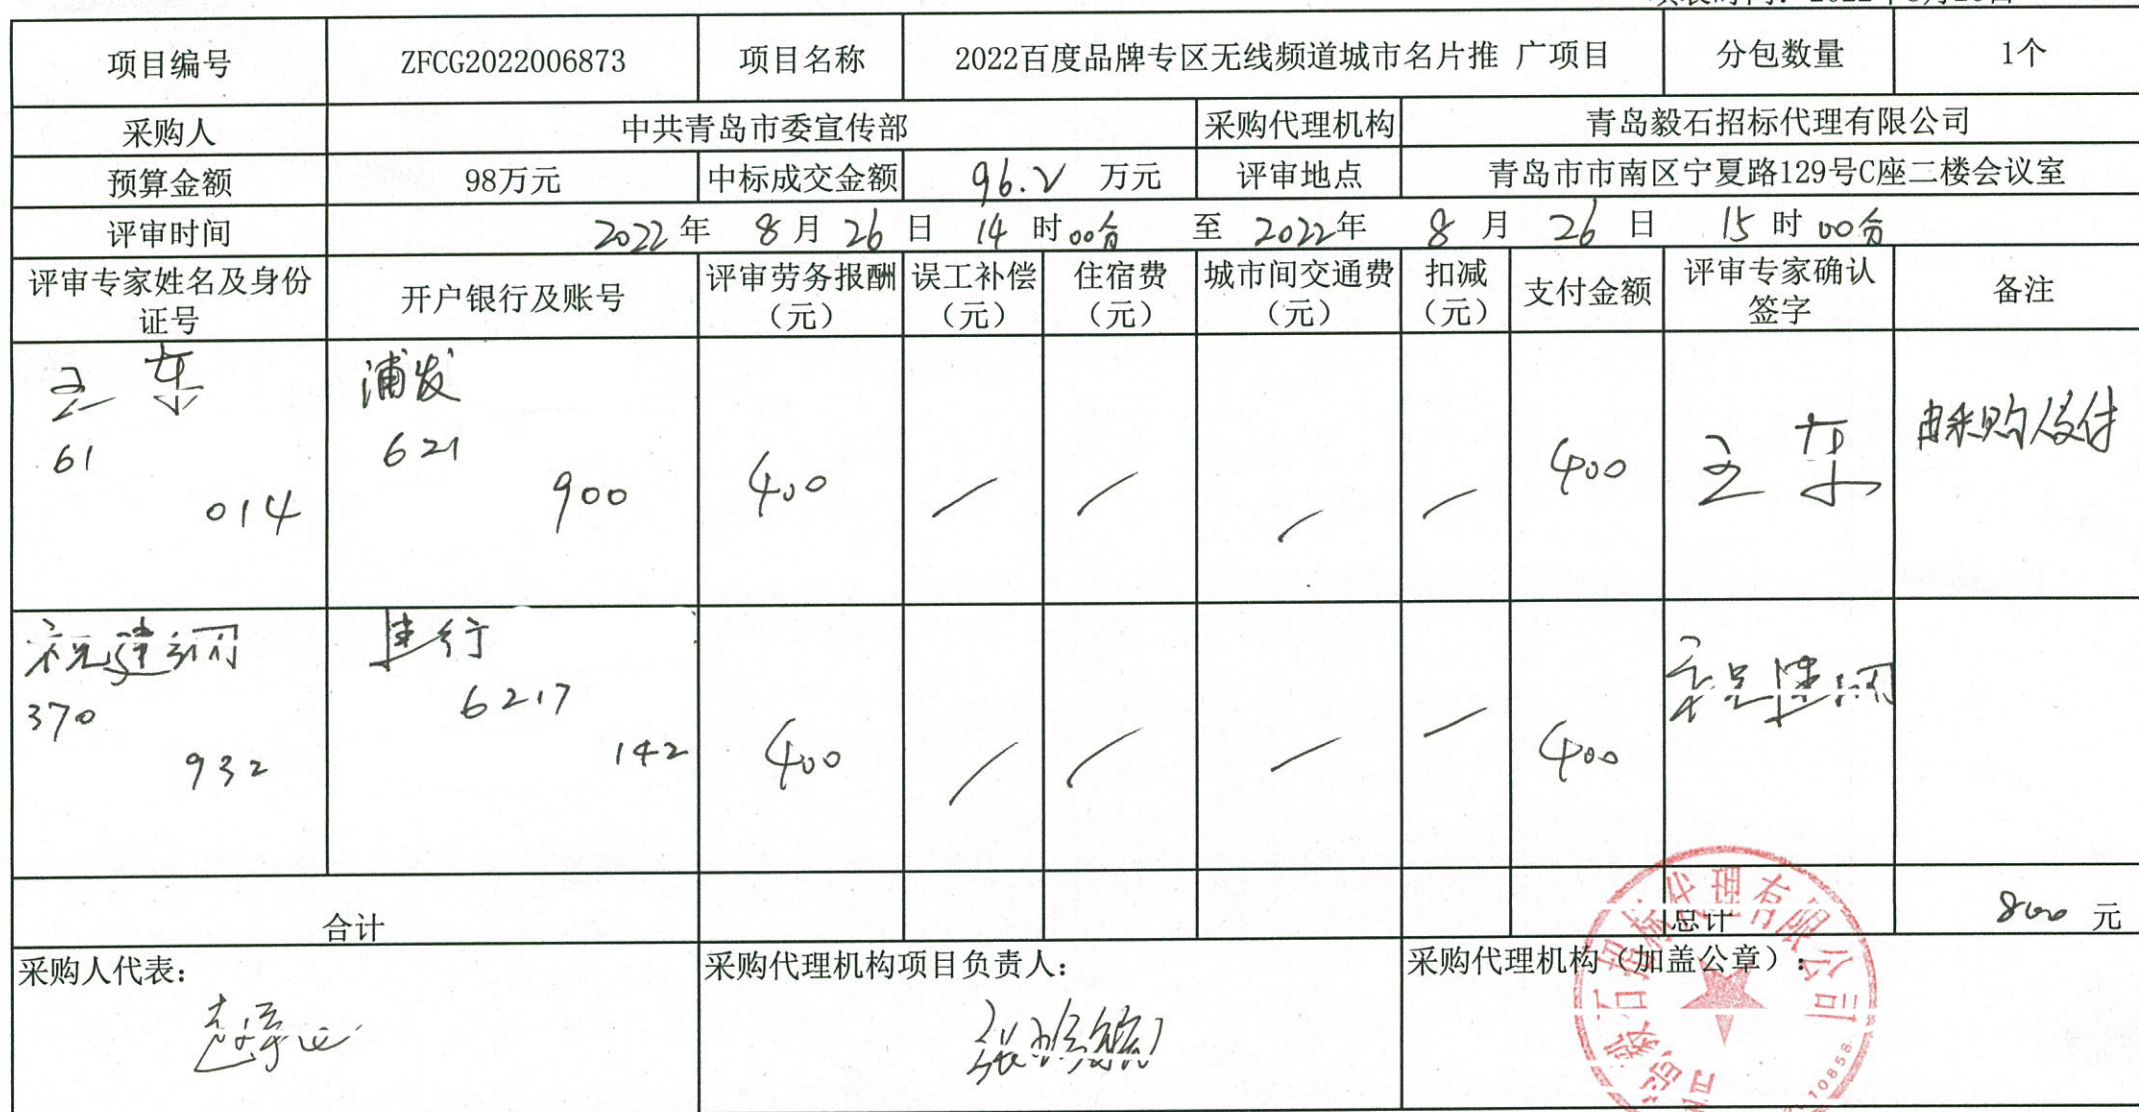 项目编号 ZFCG2022006873 项目名称 2022百度品牌专区无线频道城市名片推 广项目 分包数量 1个
采购人 中共青岛市委宣传部 采购代理机构 青岛毅石招标代理有限公司
预算金额 98万元 中标成交金额 96.2 万元 评审地点 青岛市市南区宁夏路129号C座二楼会议室
评审时间 2022年 8月26日 14时00分 至 2022年 8月 26日 15时00分
评审专家姓名及身份证号 开户银行及账号 评审劳务报酬（元） 误工补偿（元） 住宿费（元） 城市间交通费（元） 扣减（元） 支付金额 评审专家确认签字 备注
王东 浦发
61 621
014 900 400 / / / / 400 王东 由采购人支付
祝建 建行
370 6217
932 142 400 / / / / 400
合计 总计 800 元
采购人代表： 采购代理机构项目负责人： 采购代理机构（加盖公章）：
青岛毅石招标代理有限公司
10858